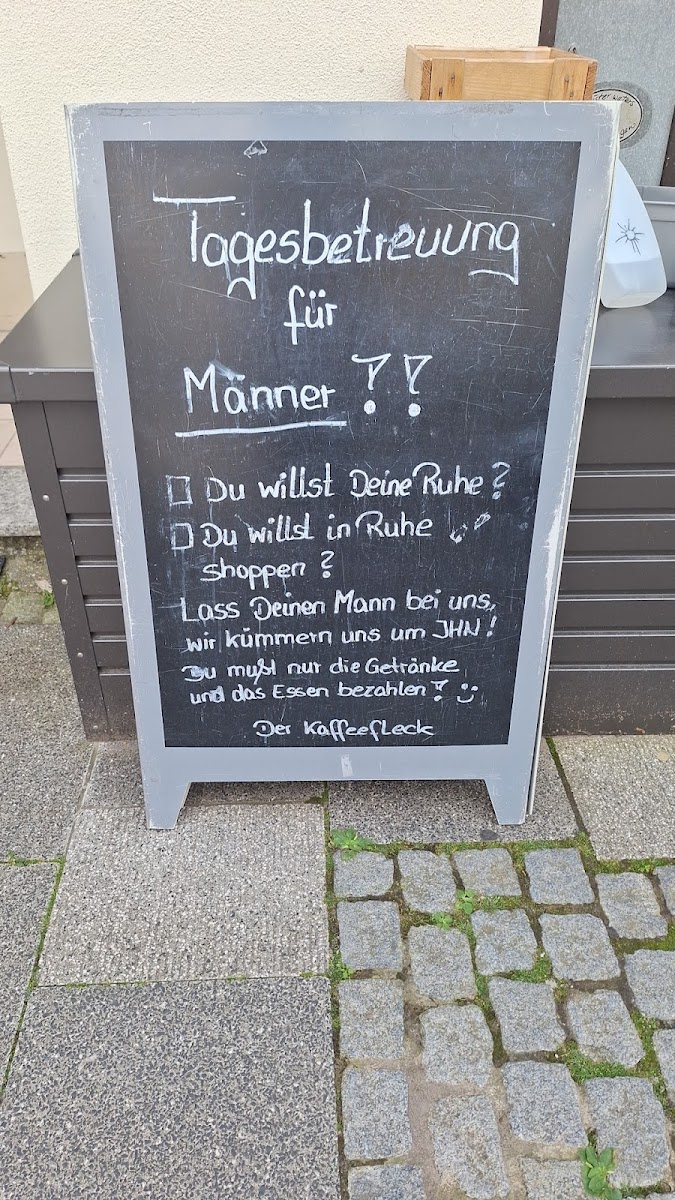 Tagesbetreuung
für
Männer !!
Du willst Deine Ruhe?
Du willst in Ruhe
shoppen?
Lass Deinen Mann bei uns,
wir kümmern uns um IHN!
Du mußt nur die Getränke
und das Essen bezahlen! :)
Der Kaffeefleck